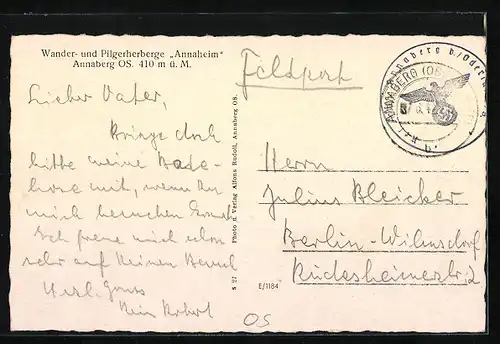 Wander- und Pilgerherberge „Annaheim“
Annaberg OS. 410 m ü. M.
Feldpost
Lieber Vater,
Bringe doch
bitte meine Bade-
hose mit, wenn Du
mich besuchen kommst
Ich freue mich schon
sehr auf Deinen Besuch
Herzl. Gruss
Dein Robert
Photo u. Verlag Alfons Rudoll, Annaberg OS.
S 27
E/1184
ANNABERG (OS
Herrn
Julius Bleicker
Berlin-Wilmsdorf
Rüdesheimerstr. 2
OS